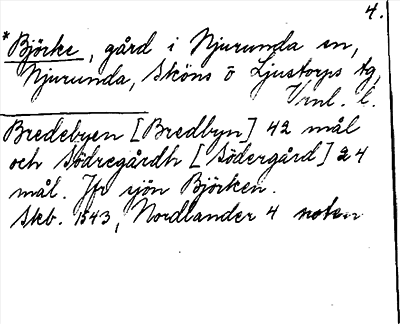 4.
*Björke, gård i Njurunda sn,
Njurunda, Sköns o Ljustorps tg,
V/rnl. l.
Bredebyen [Bredbyn] 42 mål
och Södregårdh [Södergård] 24
mål. Jfr sjön Björken.
Skb. 1543, Nordlander 4 noten